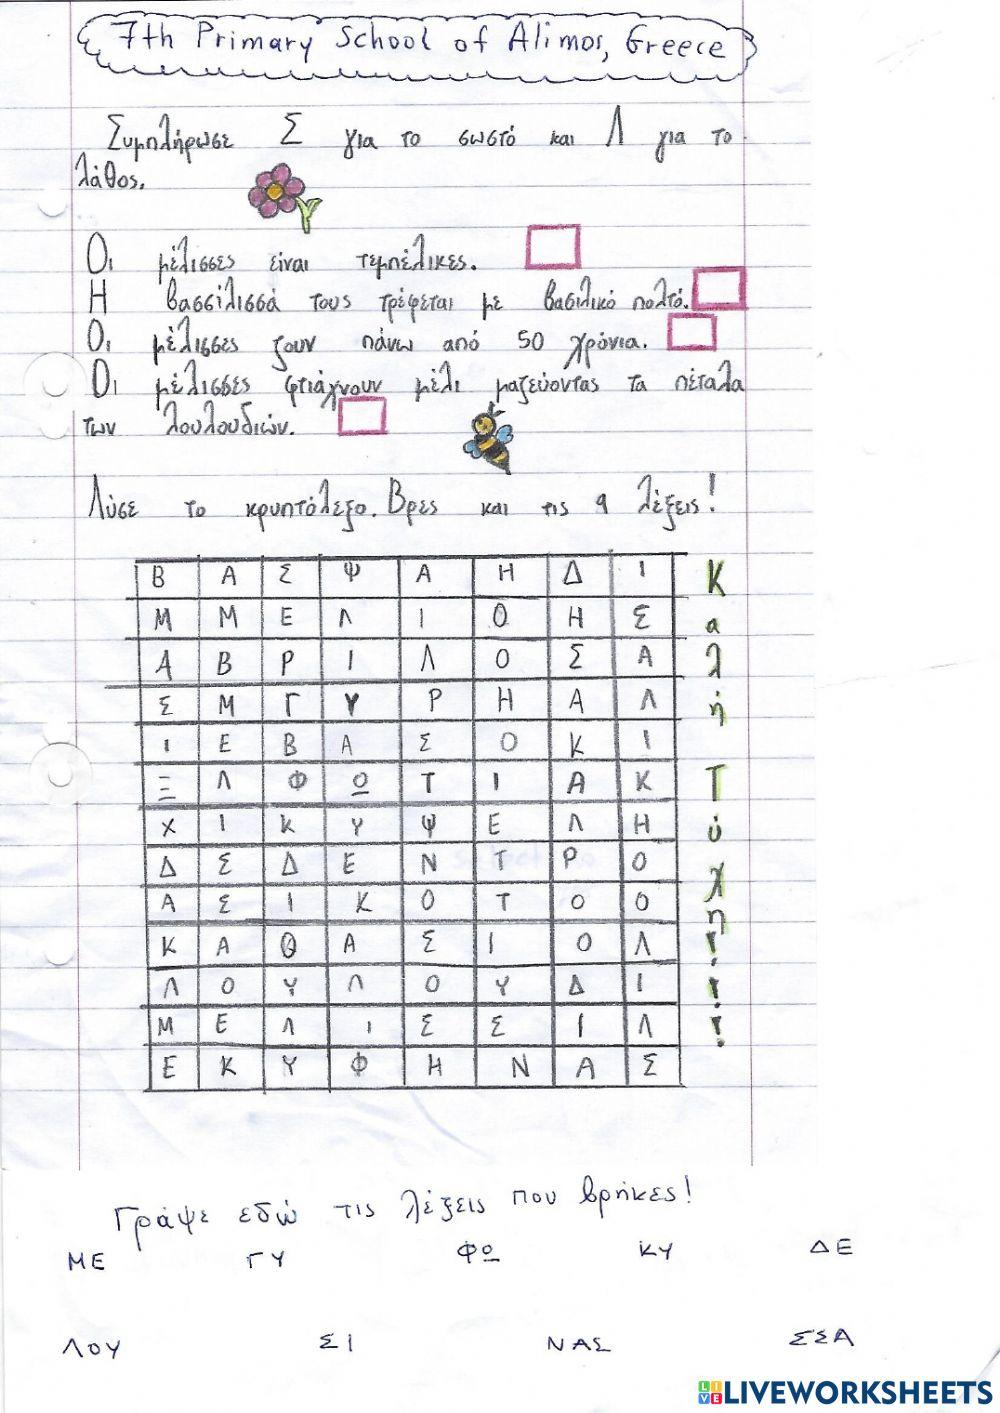 7th Primary School of Alimos, Greece
Συμπλήρωσε Σ για το σωστό και Λ για το
λάθος.
Οι μέλισσες είναι τεμπέλικες.
Η βασσίλισσά τους τρέφεται με βασιλικό πολτό.
Οι μέλισσες ζουν πάνω από 50 χρόνια.
Οι μέλισσες φτιάχνουν μέλι μαζεύοντας τα πέταλα
των λουλουδιών.
Λύσε το κρυπτόλεξο. Βρες και τις 9 λέξεις!
Β Α Σ Ψ Α Η Δ Ι
Μ Μ Ε Λ Ι Ο Η Σ
Α Β Ρ Ι Λ Ο Σ Α
Σ Μ Γ Υ Ρ Η Α Λ
Ι Ε Β Α Σ Ο Κ Ι
Ξ Λ Φ Ω Τ Ι Α Κ
Χ Ι Κ Υ Ψ Ε Λ Η
Δ Σ Δ Ε Ν Τ Ρ Ο
Α Σ Ι Κ Ο Τ Ο Ο
Κ Α Θ Α Σ Ι Ο Λ
Λ Ο Υ Λ Ο Υ Δ Ι
Μ Ε Λ Ι Σ Σ Ι Λ
Ε Κ Υ Φ Η Ν Α Σ
Καλή Τύχη!!!
Γράψε εδώ τις λέξεις που βρήκες!
ΜΕ ΓΥ ΦΩ ΚΥ ΔΕ
ΛΟΥ ΣΙ ΝΑΣ ΣΣΑ
LIVEWORKSHEETS